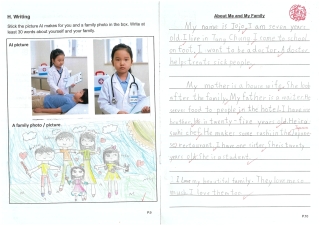 H. Writing
Stick the picture AI makes for you and a family photo in the box. Write at
least 30 words about yourself and your family.
AI picture
A family photo / picture
P.9
About Me and My Family
My name is Jojo. I am seven years
old. I live in Tung Chung. I come to school
on foot. I want to be a doctor. A doctor
helps treats sick people.
My mother is a house wife. She
after the family. My father is a waiter. He
serve food to people in the hotel. I have
brother is twenty-five years old. He is a
chef. He makes
restaurant. I have one sister. She is twenty
years old. She is a student.
I love my beautiful family. They love me so
much. I love them too.
P.10